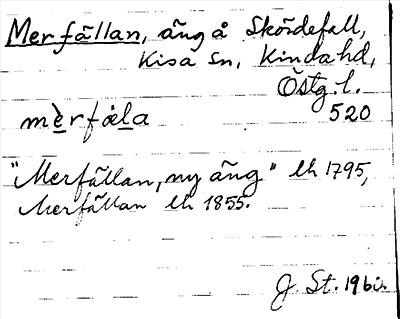 Merfällan, äng å Skördefall,
Kisa sn, Kinda hd,
Östg. l.
mèrfäla 520
"Merfällan, ny äng" lh 1795,
Merfällan lh 1855.
J. St. 1961.